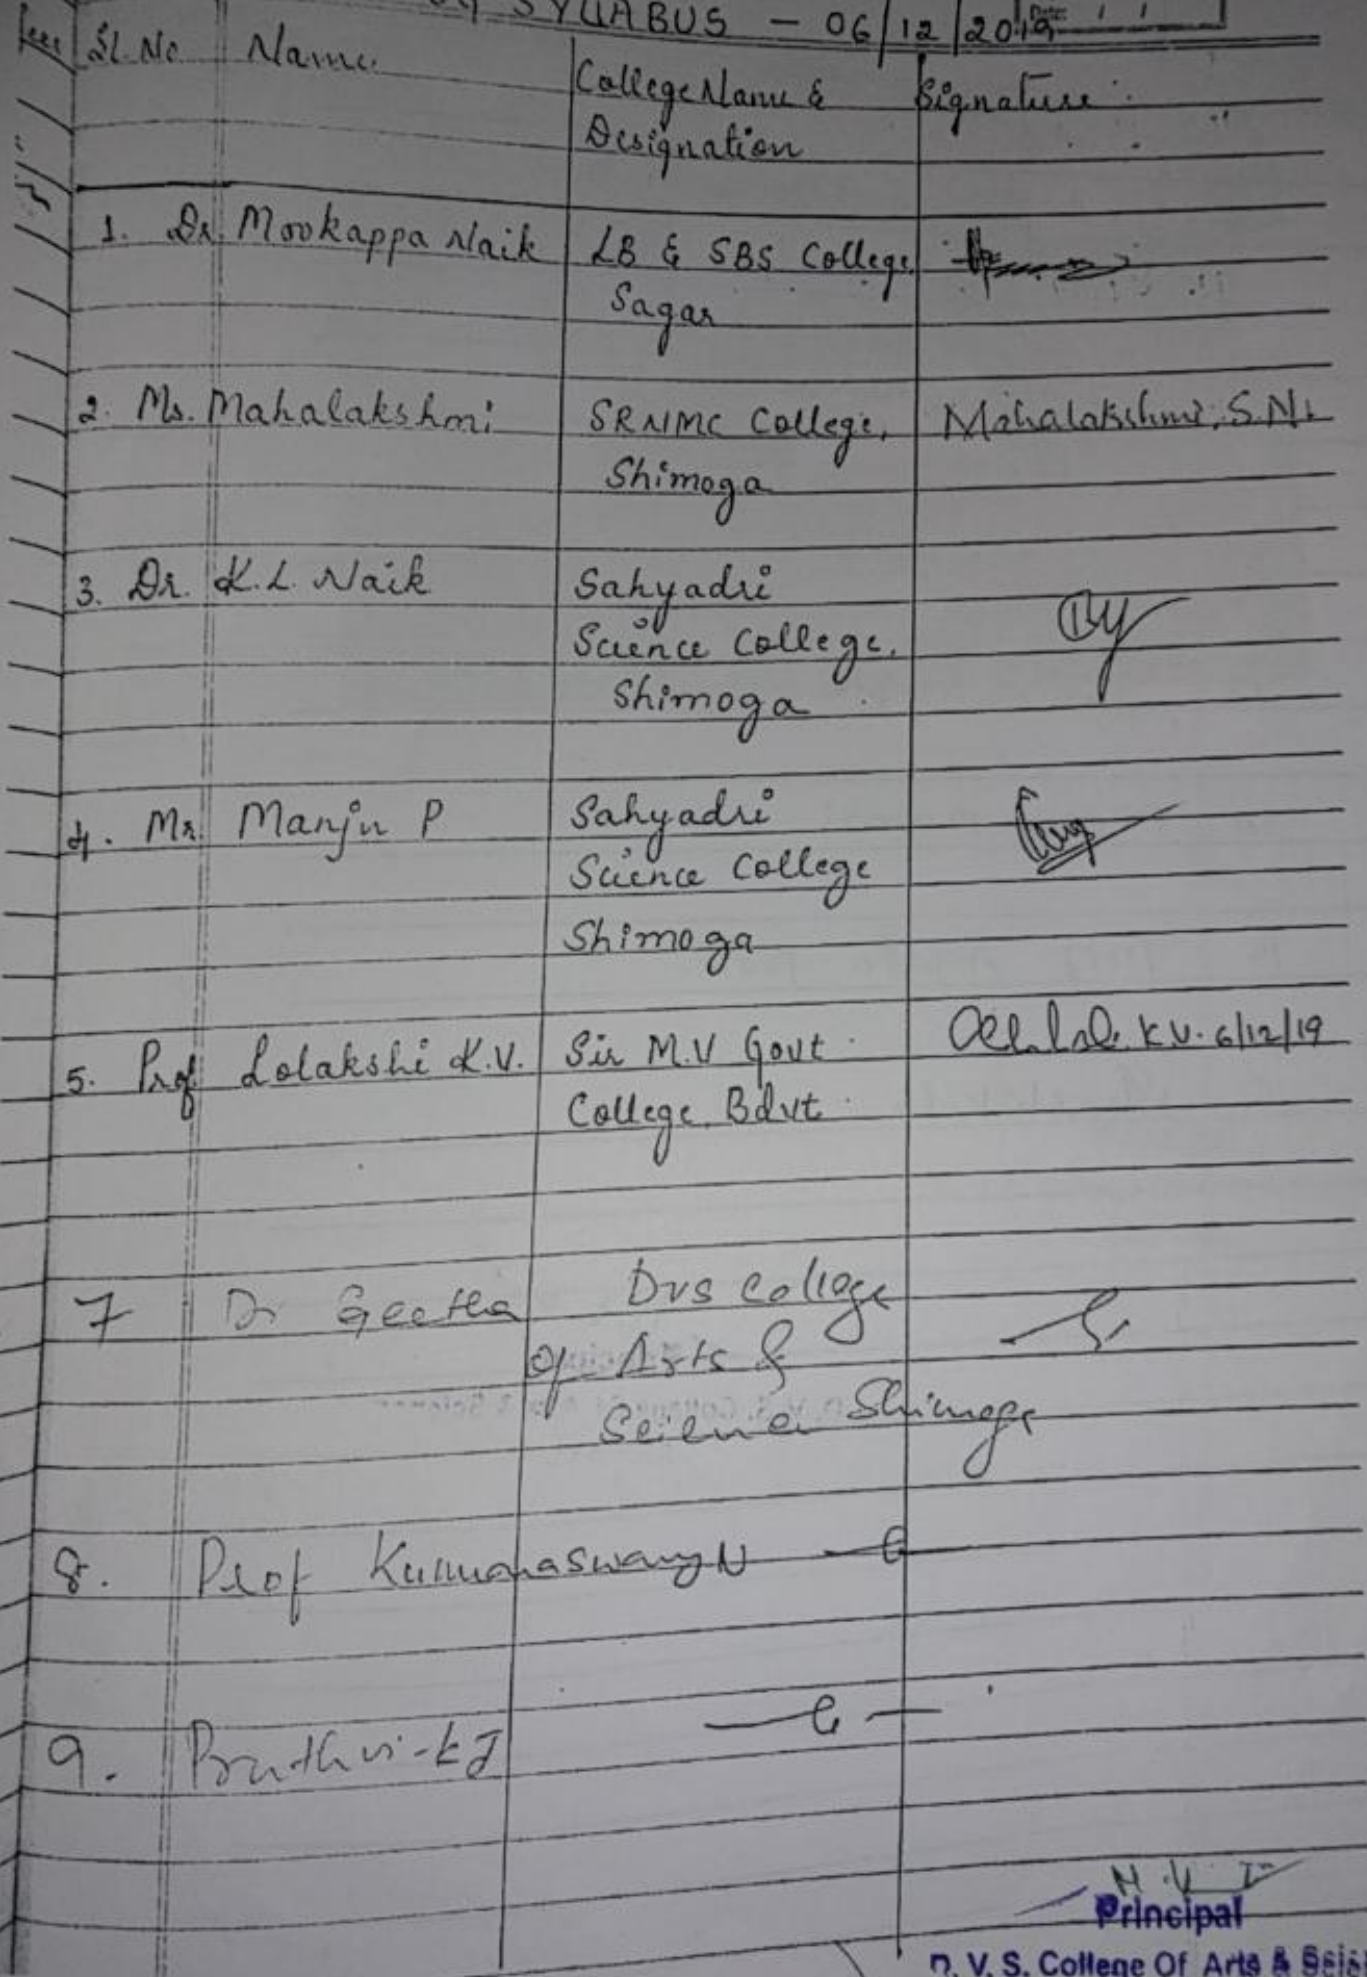 SYLLABUS - 06/12/2019
Sl. No Name College Name & Signature
Designation
1. Dr. Mookappa Naik LB & SBS College
Sagar
2. Ms. Mahalakshmi SRNMC College, Mahalakshmi. S.N.
Shimoga
3. Dr. K.L. Naik Sahyadri
Science College,
Shimoga
4. Mr. Manju P Sahyadri
Science College
Shimoga
5. Prof Lolakshi K.V. Sir M.V Govt K.V. 6/12/19
College, Bdvt.
7 Dr Geetha DVS College
of Arts &
Science Shimoga
8. Prof Kumaraswamy N
9. Pruthvi K J
Principal
D. V. S. College Of Arts &